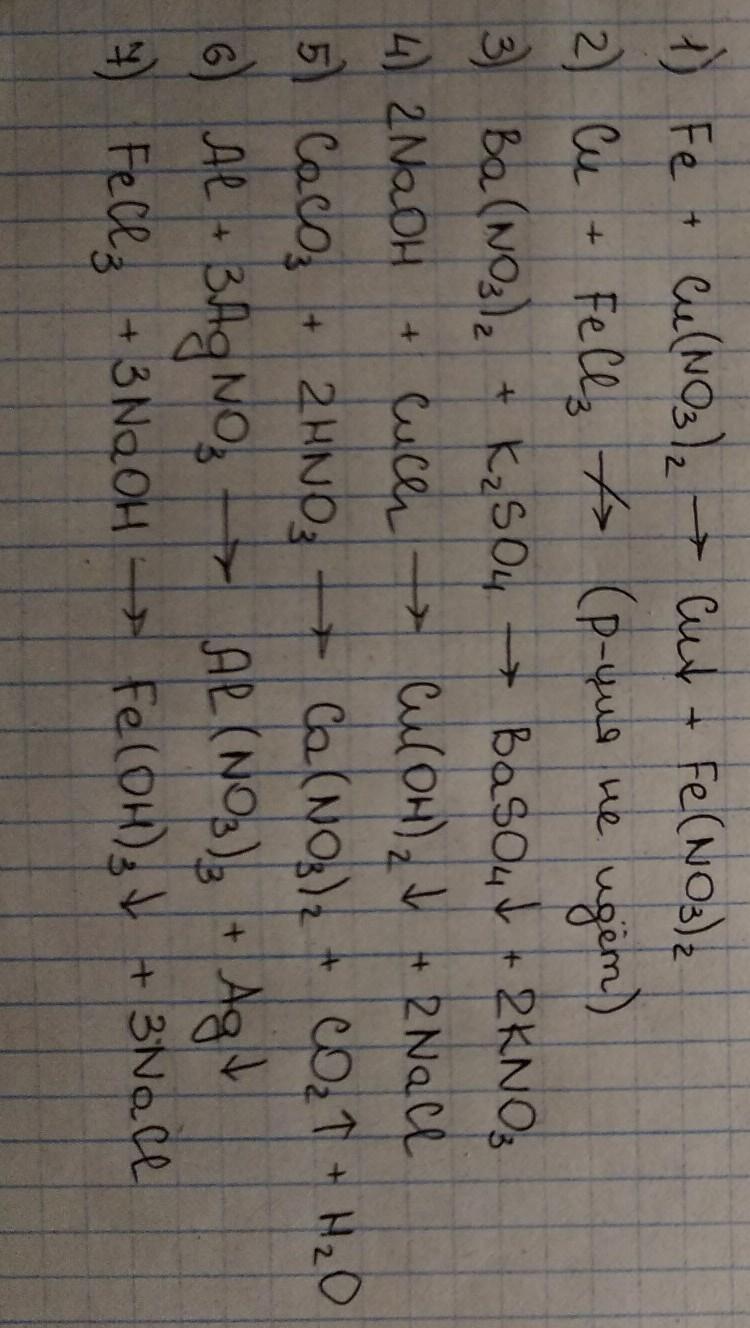 1) Fe + Cu(NO₃)₂ → Cu↓ + Fe(NO₃)₂
2) Cu + FeCl₃ ↛ (р-ция не идёт)
3) Ba(NO₃)₂ + K₂SO₄ → BaSO₄↓ + 2KNO₃
4) 2NaOH + CuCl₂ → Cu(OH)₂↓ + 2NaCl
5) CaCO₃ + 2HNO₃ → Ca(NO₃)₂ + CO₂↑ + H₂O
6) Al + 3AgNO₃ → Al(NO₃)₃ + Ag↓
7) FeCl₃ + 3NaOH → Fe(OH)₃↓ + 3NaCl